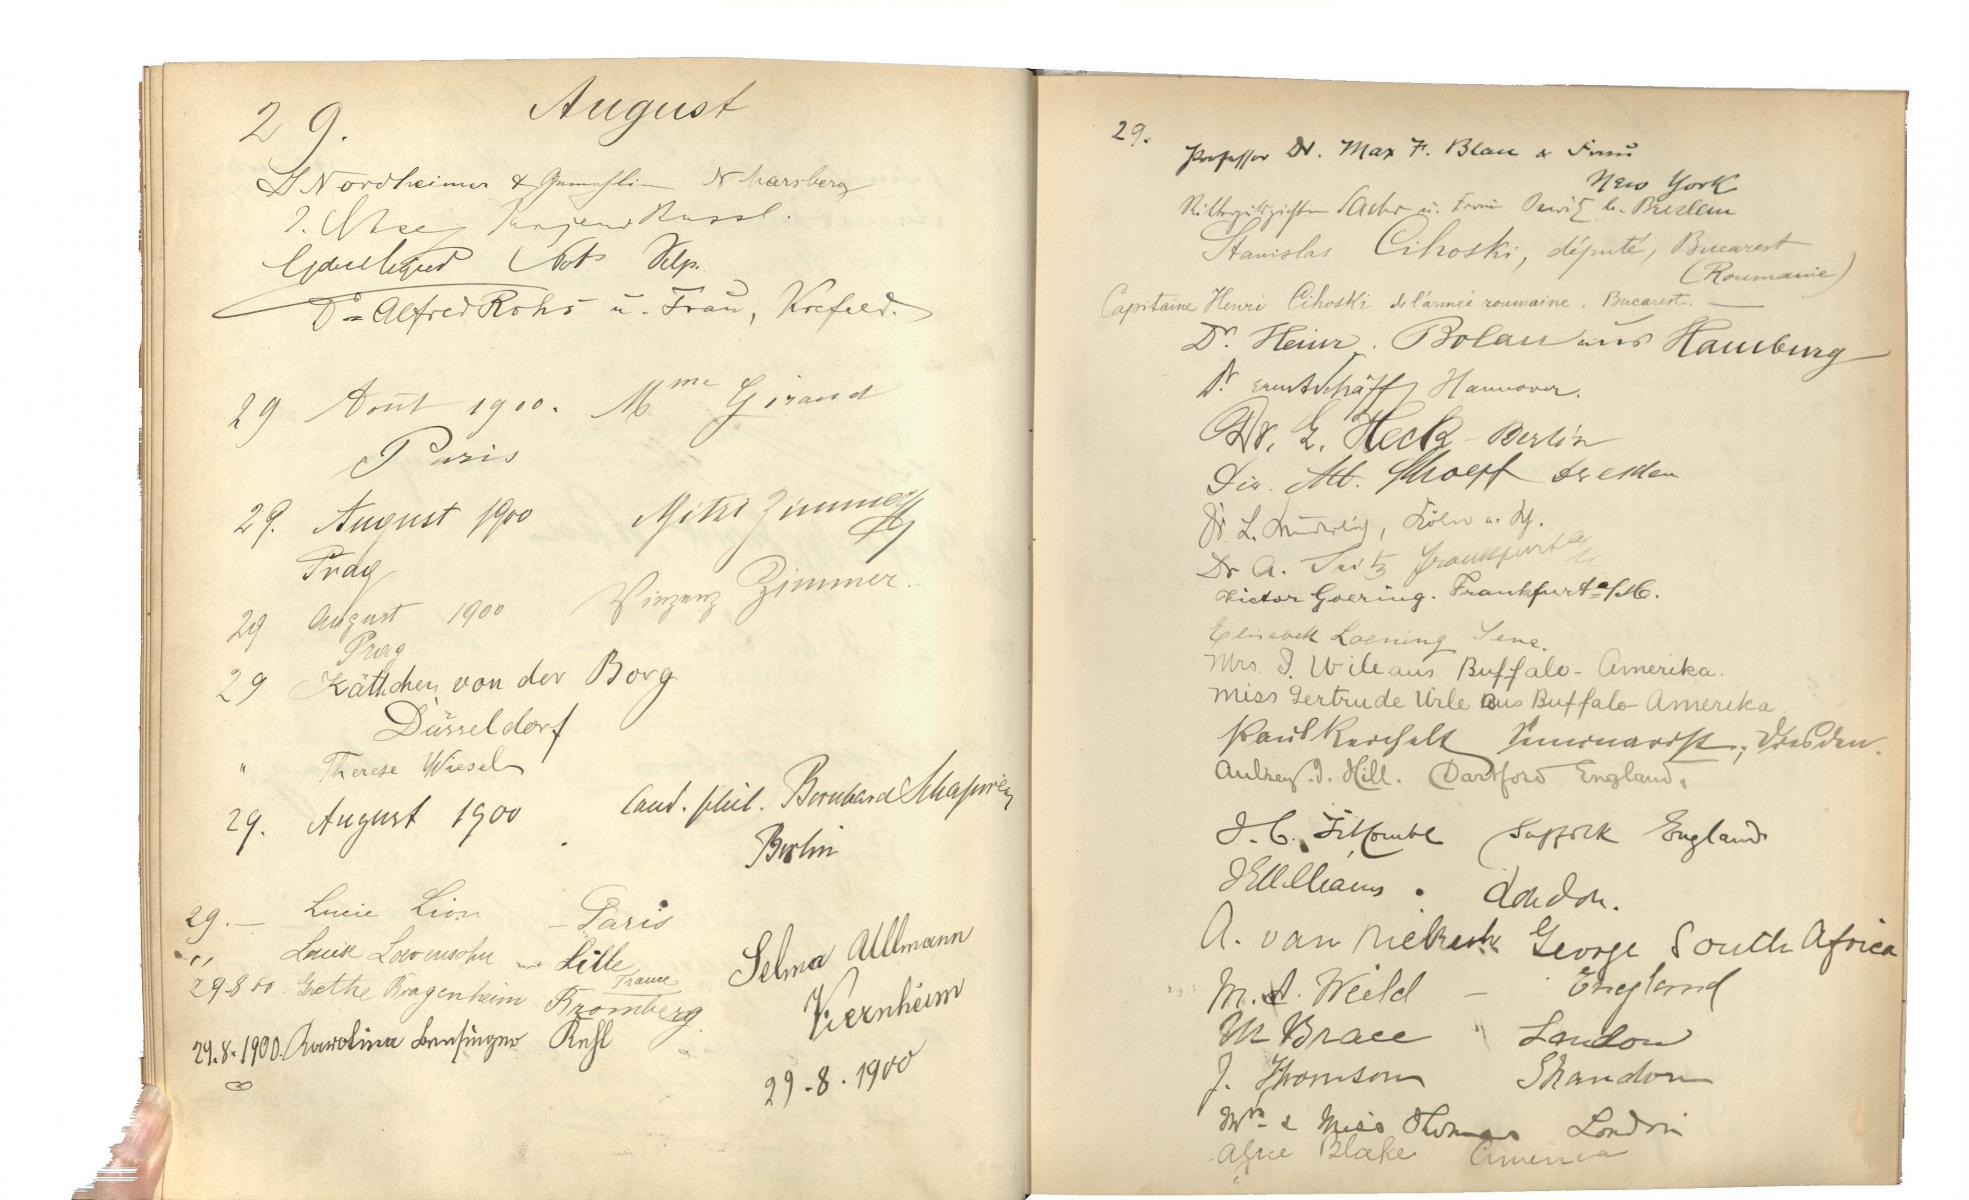 29. August
S Nordheimer & Gemahlin N Marsberg
Velp.
Dr Alfred Rohs u. Frau, Krefeld.
29 Août 1900. Mme Giraud
Paris
29. August 1900 Mitzi Zimmer
Prag
29 August 1900 Vinzenz Zimmer.
Prag
29 Käthchen von der Borg
Düsseldorf
" Therese Wiesel
29. August 1900 Cand. phil. Bernhard Schapire
Berlin
29. — Lucie Lion — Paris
" Louise Loevensohn — Lille
29.8.00 Grethe Bragenheim Bromberg
29.8.1900. Karolina Bensinger Kehl
Selma Ullmann
Viernheim
29.8.1900
29. Professor Dr. Max F. Blau & Frau
New York
Rittergutspächter Sachs u. Frau b. Breslau
Stanislas Cihoski, député, Bucarest
(Roumanie)
Capitaine Henri Cihoski de l'armée roumaine. Bucarest. —
Dr. Heinr. Bolau aus Hamburg
Dr. Ernst Schäff, Hannover.
Dr. L. Heck - Berlin
Dir. Alb. Schoepf Dresden
Dr. L. Ludwig, Köln a. Rh.
Dr A. Seitz Frankfurt a/M
Victor Goering. Frankfurt a/M.
Elisabeth Loening Jena.
Mrs. I. Wile aus Buffalo - Amerika.
Miss Gertrude Wile aus Buffalo Amerika
Paul Reichelt Seminarist, Dresden.
Aubrey. J. Hill. Dartford England.
J. C. Titcombe Suffolk England
J E Williams. London.
A. van Niekerk George South Africa
M. A. Weild — England
M Brace London
J. Thomson Shandon
Mrs & Miss Thomas London
Alice Blake America